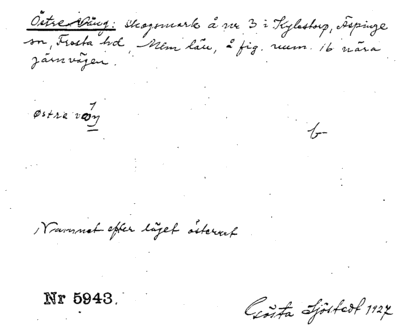 Östre vång: Skogsmark å nr 3 i Kylstorp, Äspinge
sn, Frosta hd, Mlm län, å fig. num. 16 nära
järnvägen.
østre
b
Namnet efter läget österut
Nr 5943.
Gösta Sjöstedt 1927